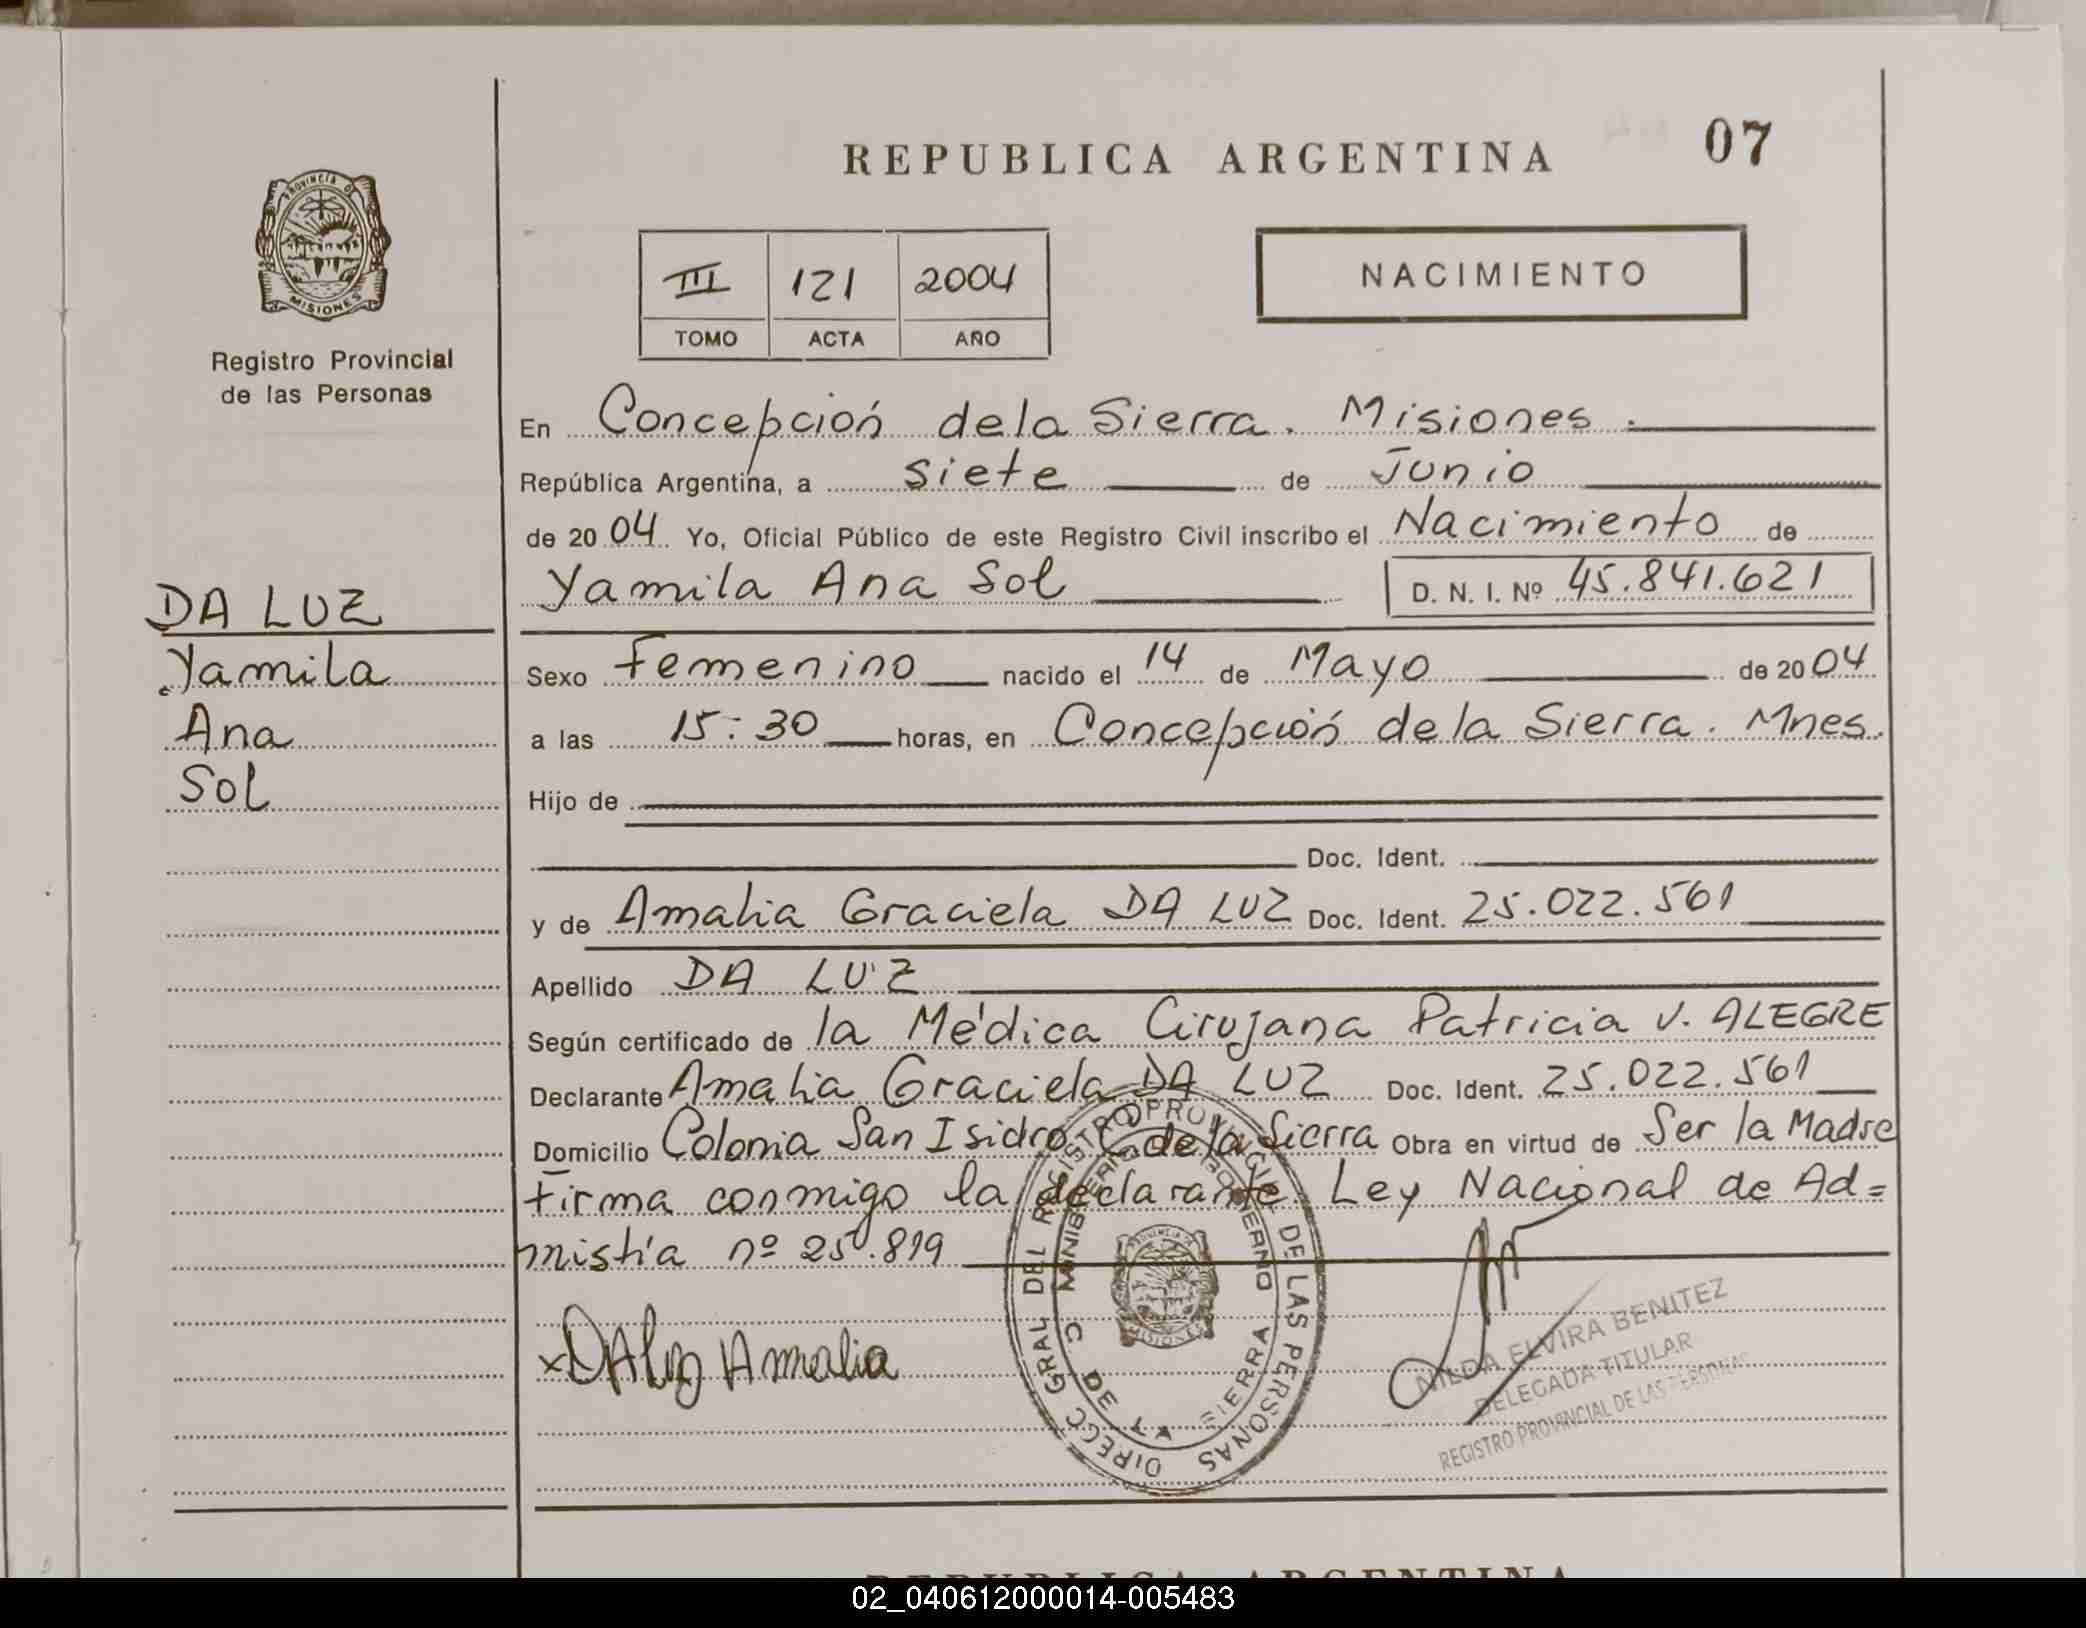 REPUBLICA ARGENTINA 07
PROVINCIA DE
MISIONES
Registro Provincial
de las Personas
III 121 2004
TOMO ACTA AÑO
NACIMIENTO
En Concepción de la Sierra. Misiones.
República Argentina, a siete de Junio
de 2004 Yo, Oficial Público de este Registro Civil inscribo el Nacimiento de
Yamila Ana Sol D. N. I. Nº 45.841.621
DA LUZ
Yamila
Ana
Sol
Sexo Femenino nacido el 14 de Mayo de 2004
a las 15:30 horas, en Concepción de la Sierra. Mnes.
Hijo de
Doc. Ident.
y de Amalia Graciela DA LUZ Doc. Ident. 25.022.561
Apellido DA LUZ
Según certificado de la Médica Cirujana Patricia V. ALEGRE
Declarante Amalia Graciela DA LUZ Doc. Ident. 25.022.561
Domicilio Colonia San Isidro C. de la Sierra Obra en virtud de Ser la Madre
Firma conmigo la declarante. Ley Nacional de Ad=
mistía nº 25.819
x DALuz Amalia
DIRECC GRAL DEL REGISTRO PROVINCIAL DE LAS PERSONAS
MINISTERIO DE GOBIERNO
C DE LA SIERRA
MISIONES
NILDA ELVIRA BENITEZ
DELEGADA TITULAR
REGISTRO PROVINCIAL DE LAS PERSONAS
REPUBLICA ARGENTINA
02_040612000014-005483